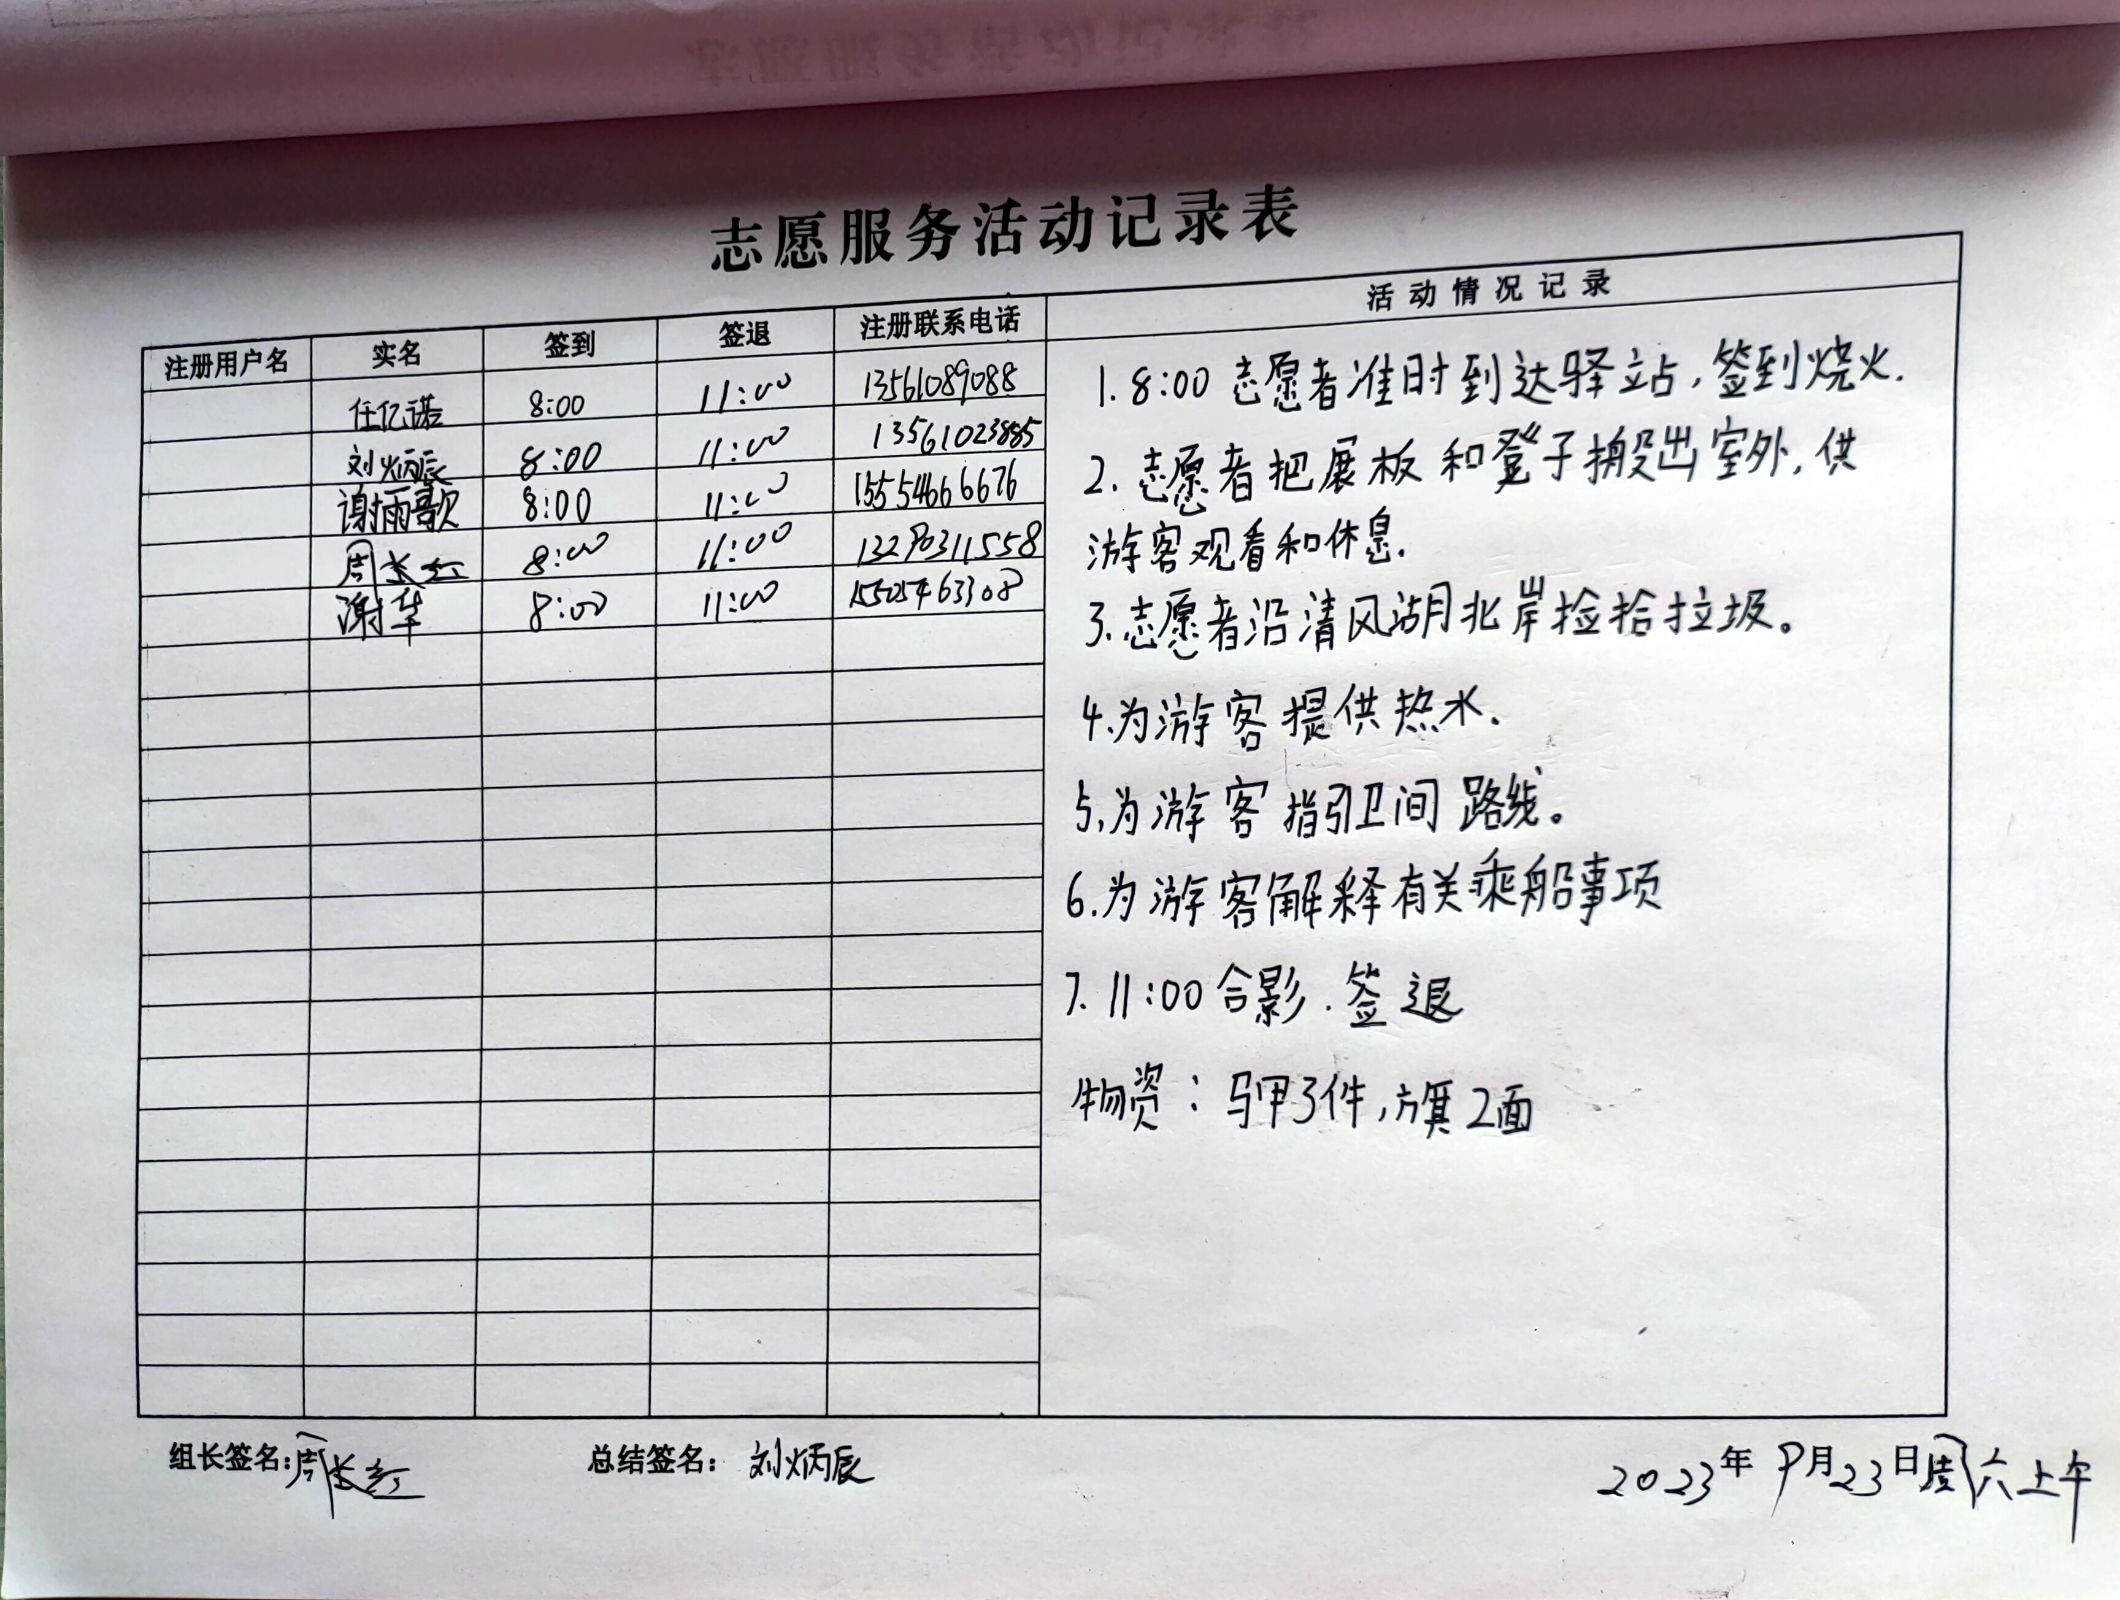 志愿服务活动记录表
注册用户名 实名 签到 签退 注册联系电话 活动情况记录
任亿诺 8:00 11:00 13561089088
刘炳辰 8:00 11:00 13561023885
谢雨歌 8:00 11:00 15554666676
周长红 8:00 11:00 13290311558
谢华 8:00 11:00 15505463308
1. 8:00 志愿者准时到达驿站,签到烧火.
2. 志愿者把展板和凳子搬出室外,供
游客观看和休息.
3.志愿者沿清风湖北岸捡拾垃圾。
4.为游客提供热水.
5,为游客指引卫间路线。
6.为游客解释有关乘船事项
7. 11:00合影.签退
物资:马甲3件,旗2面
组长签名:周长红 总结签名:刘炳辰 2023年9月23日周六上午